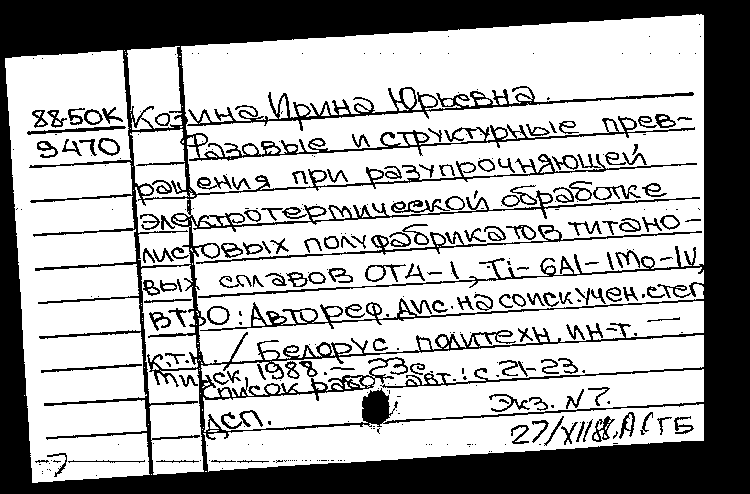 88-50К Козина, Ирина Юрьевна.
9470 Фазовые и структурные прев-
ращения при разупрочняющей
электротермической обработке
листовых полуфабрикатов титано-
вых сплавов ОТ4-1, Ti-6Al-1Mo-1V,
ВТ30: Автореф. дис. на соиск. учен. степ.
к.т.н. / Белорус. политехн. ин-т. —
Минск, 1988. – 23с.
Список работ авт.: с. 21-23.
ДСП. Экз. N7.
27/XII88.